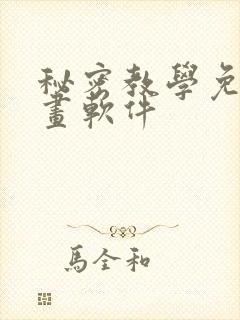 秘密教學免
畫軟件
馬全和